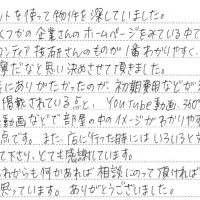 ットを使って物件を探していました。
くつかの企業さんのホームページをみている中で
技研さんのものが1番わかりやすく、
だなと思い決めさせて頂きました。
にありがたかったのが、初期費用などが
掲載されている点と、YouTube動画、360°
動画などで部屋の中のイメージがわかりやす
点です。また、店に行った時にはいろいろと
て下さり、とても感謝しています。
れからも何かあれば相談にのって頂ければ
思っています。ありがとうございました。